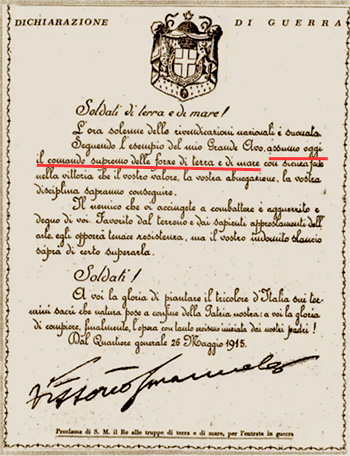 DICHIARAZIONE DI GUERRA
Soldati di terra e di mare!
L'ora solenne delle rivendicazioni nazionali è suonata.
Seguendo l'esempio del mio Grande Avo, assumo oggi
il comando supremo delle forze di terra e di mare con sicura fede
nella vittoria che il vostro valore, la vostra abnegazione, la vostra
disciplina sapranno conseguire.
Il nemico che vi accingete a combattere è agguerrito e
degno di voi. Favorito dal terreno e dai sapienti apprestamenti dell'
arte, egli opporrà tenace resistenza, ma il vostro indomito slancio
saprà di certo superarla.
Soldati!
A voi la gloria di piantare il tricolore d'Italia sui ter-
mini sacri che natura pose a confine della Patria nostra: a voi la gloria
di compiere, finalmente, l'opera con tanto eroismo iniziata dai nostri padri!
Dal Quartiere generale 26 Maggio 1915.
Vittorio Emanuele
Proclama di S. M. il Re alle truppe di terra e di mare, per l'entrata in guerra